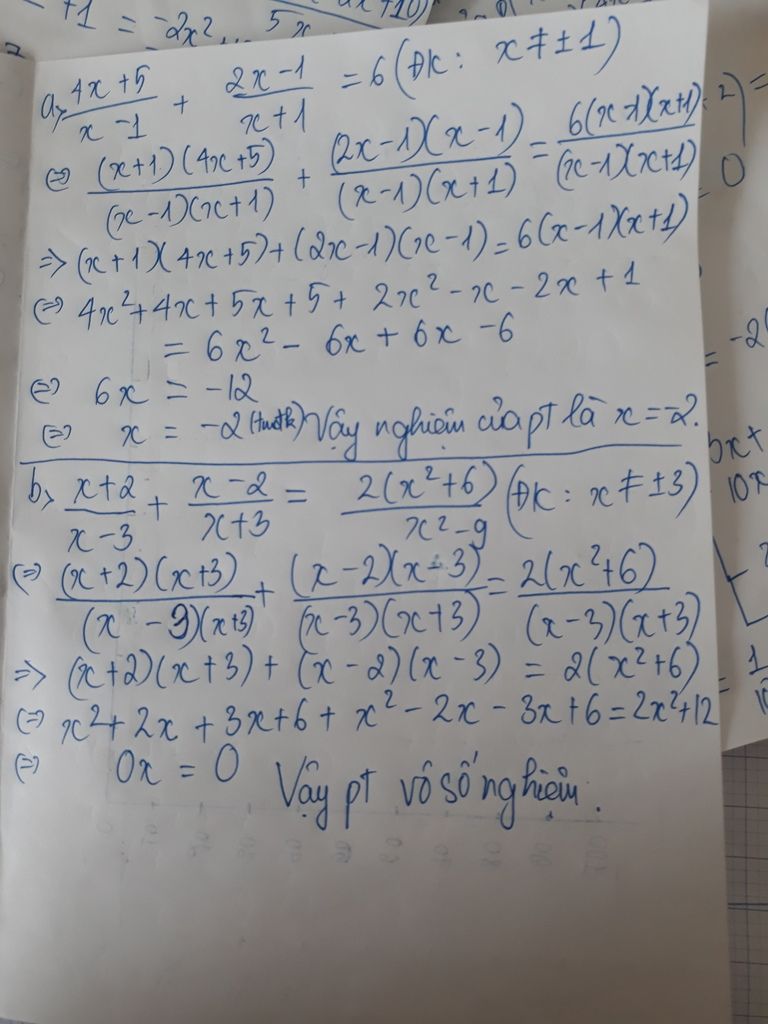 +1 = -2x² 5x
a, (4x+5)/(x-1) + (2x-1)/(x+1) = 6 (ĐK: x ≠ ±1)
⇔ ((x+1)(4x+5))/((x-1)(x+1)) + ((2x-1)(x-1))/((x-1)(x+1)) = (6(x-1)(x+1))/((x-1)(x+1))
⇒ (x+1)(4x+5)+(2x-1)(x-1)=6(x-1)(x+1)
⇔ 4x²+4x+5x+5+ 2x²-x-2x+1
= 6x²- 6x+6x-6
⇔ 6x = -12
⇔ x = -2 Vậy nghiệm của pt là x=-2.
b, (x+2)/(x-3) + (x-2)/(x+3) = (2(x²+6))/(x²-9) (ĐK: x ≠ ±3)
⇔ ((x+2)(x+3))/((x-9)(x+3)) + ((x-2)(x-3))/((x-3)(x+3)) = (2(x²+6))/((x-3)(x+3))
⇒ (x+2)(x+3)+(x-2)(x-3) = 2(x²+6)
⇔ x²+2x+3x+6+x²-2x-3x+6=2x²+12
⇔ 0x = 0 Vậy pt vô số nghiệm.